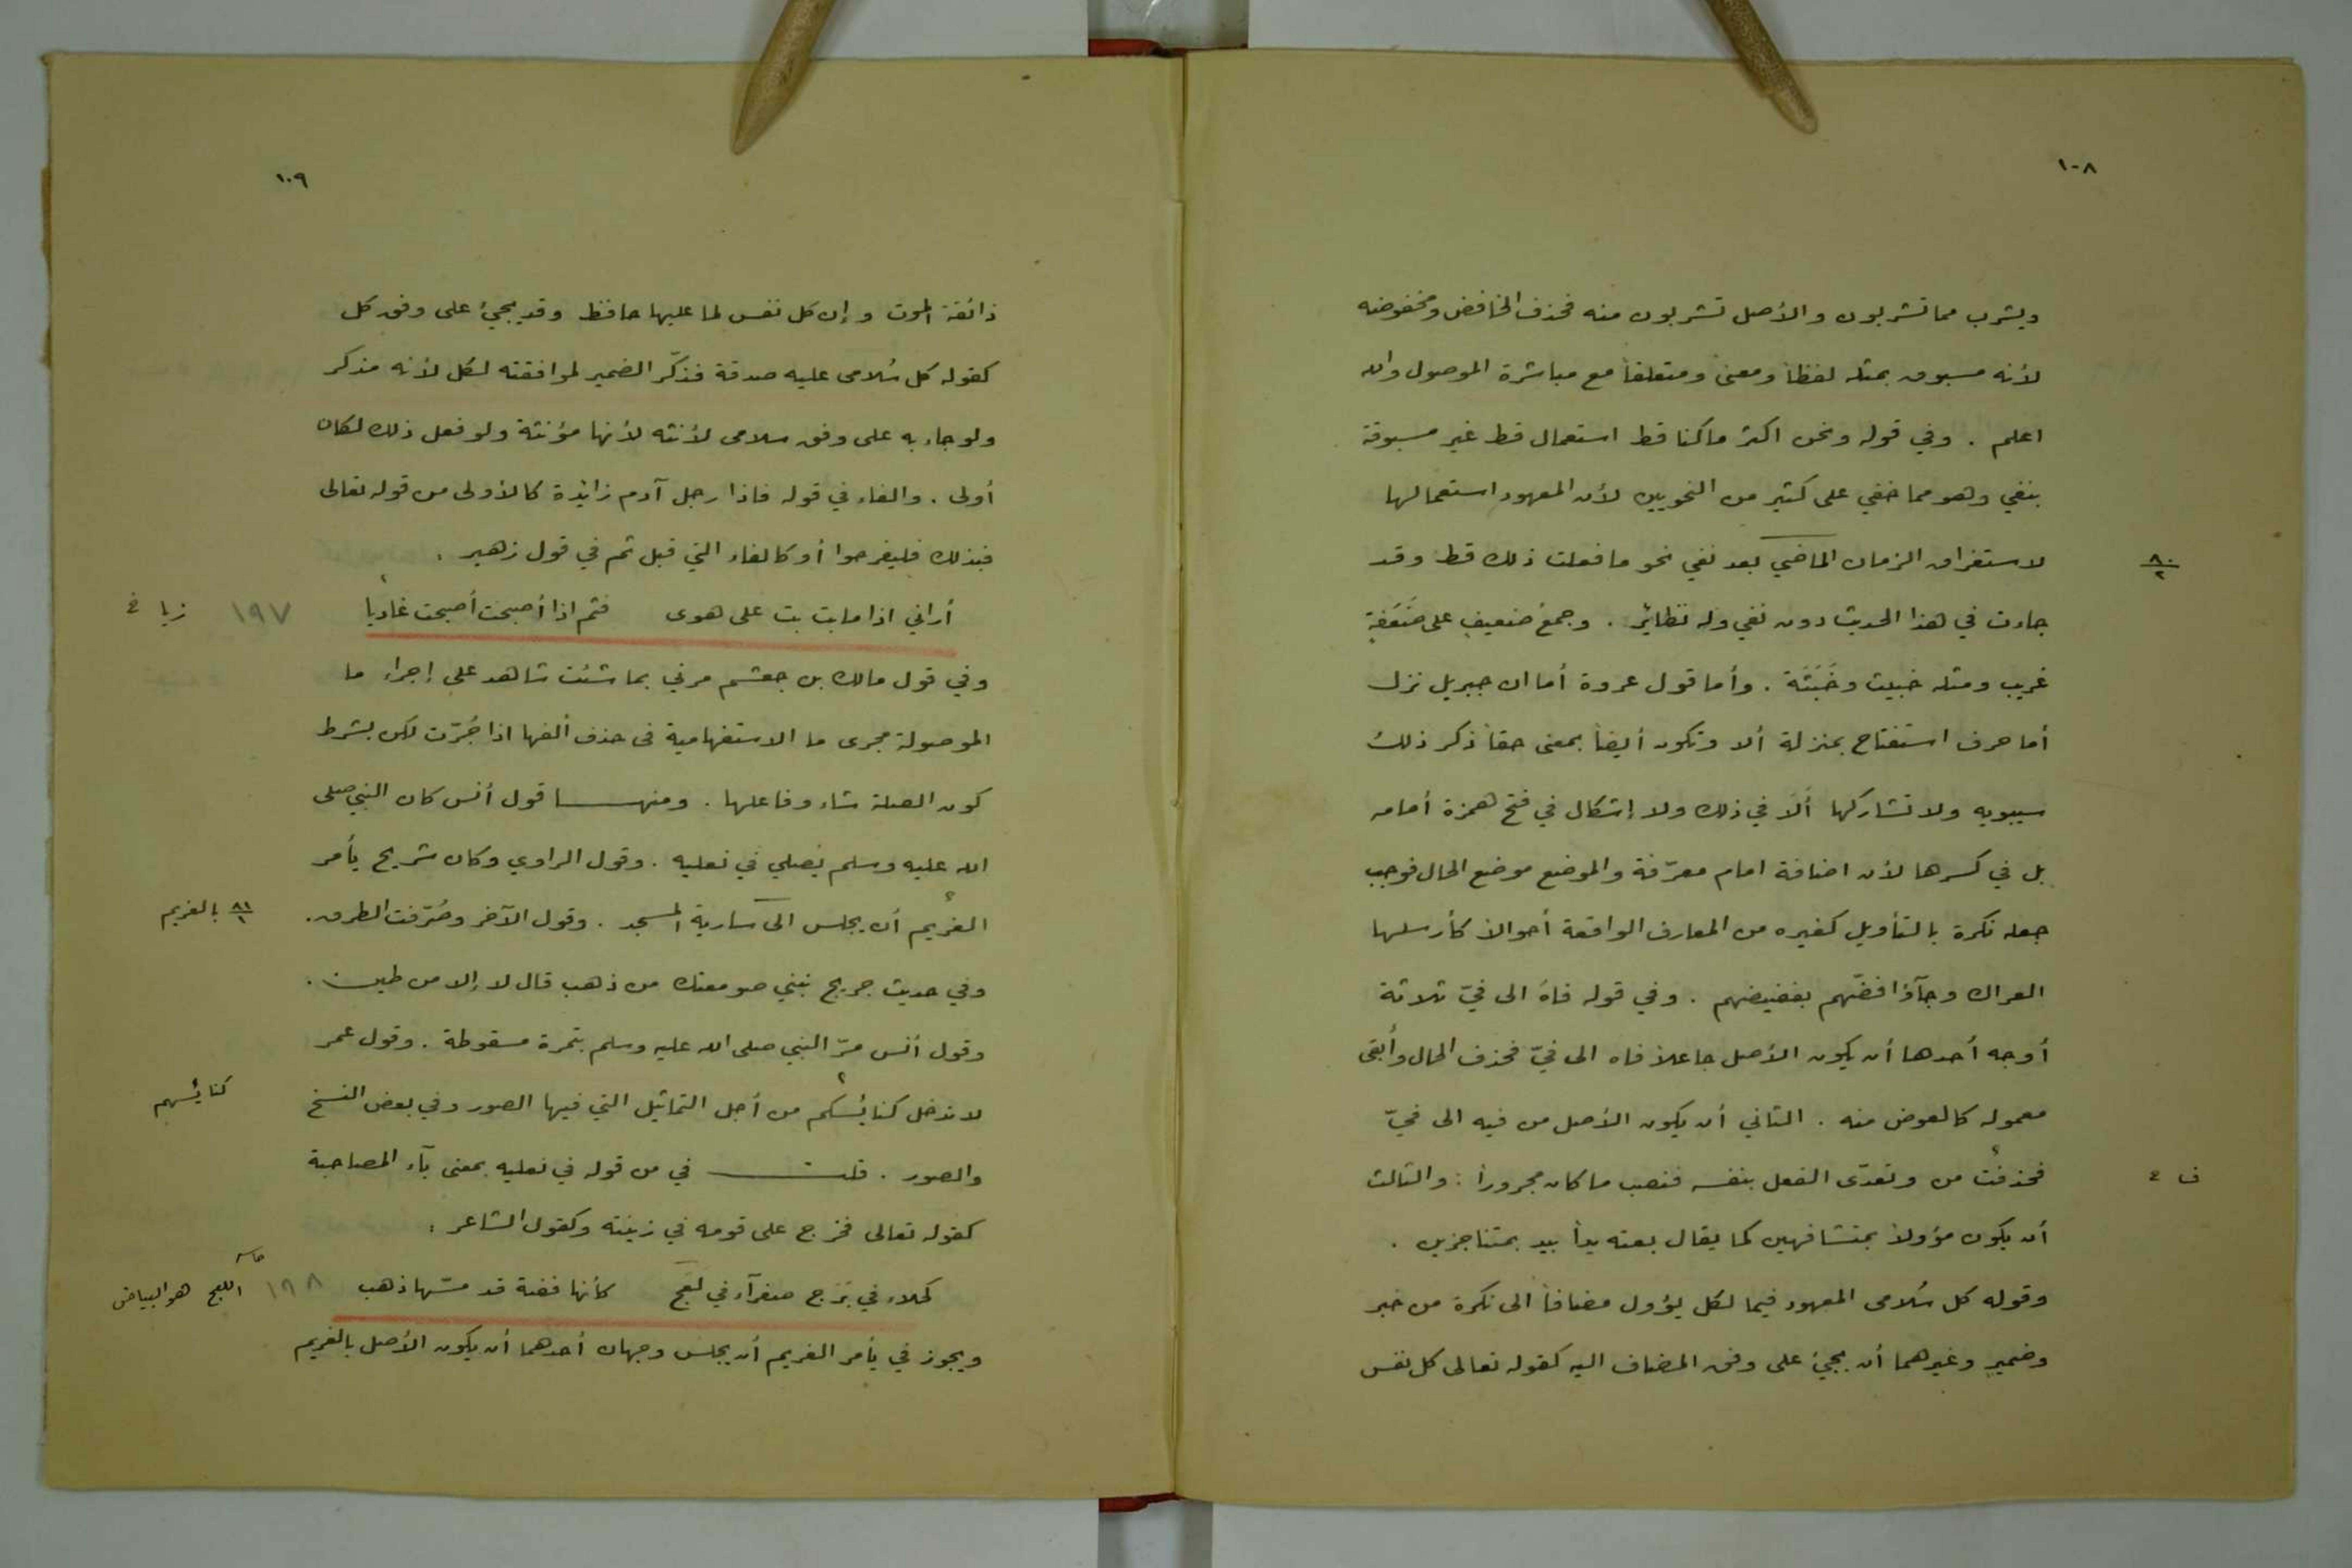 ١٠٨
ويشرب مما تشربون والأصل تشربون منه فحذف الخافض ومخفوضه
لأنه مسبوق بمثله لفظاً ومعنىً ومتعلقاً مع مباشرة الموصول والله
اعلم . وفي قوله ونحن اكثر ما كنا قط استعمال قط غير مسبوقة
بنفي وهو مما خفي على كثير من النحويين لأن المعهود استعمالها
لاستغراق الزمان الماضي بعد نفي نحو ما فعلت ذلك قط وقد
٨٠/٢
جاءت في هذا الحديث دون نفي وله نظائر . وجمعُ ضعيفٍ على ضَعَفةٍ
غريب ومثله خبيث وخَبَثَة . وأما قول عروة أما ان جبريل نزل
أما حرف استفتاح بمنزلة ألا وتكون أيضاً بمعنى حقاً ذكر ذلك
سيبويه ولا تشاركها ألَا في ذلك ولا إشكال في فتح همزة أمامه
بل في كسرها لأن اضافة امام معرّفة والموضع موضع الحال فوجب
جعله نكرة بالتأويل كغيره من المعارف الواقعة أحوالاً كأرسلها
العراك وجآؤا قضّهم بقضيضهم . وفي قوله فاهُ الى فيّ ثلاثة
أوجه أحدها أن يكون الأصل جاعلاً فاه الى فيّ فحذف الحال وأبقى
معموله كالعوض منه . الثاني أن يكون الأصل من فيه الى فيّ
فحذفت من وتعدّى الفعل بنفسه فنصب ما كان مجروراً : والثالث
ف ٤
أن يكون مؤولاً بمتشافهين كما يقال بعته يداً بيد بمتناجزين .
وقوله كل سُلامى المعهود فيما لكل يؤول مضافاً الى نكرة من خبر
وضميرٍ وغيرهما أن يجيئ على وفق المضاف اليه كقوله تعالى كل نفس
١٠٩
ذائقة الموت و إن كل نفس لما عليها حافظ وقد يجيئ على وفق كل
كقوله كل سُلامى عليه صدقة فذكّر الضمير لموافقته لكل لأنه مذكر
ولو جاء به على وفق سلامى لأنثه لأنها مؤنثة ولو فعل ذلك لكان
أولى . والفاء في قوله فاذا رجل آدم زائدة كالأولى من قوله تعالى
فبذلك فليفرحوا أو كالفاء التي قبل ثم في قول زهير .
أراني اذا ما بت بت على هوى فثم اذا أصبحت أصبحت غاديا ١٩٧
وفي قول مالك بن جعشم مرني بما شئت شاهد على إجراء ما
الموصولة مجرى ما الاستفهامية فى حذف ألفها اذا جُرّت لكن بشرط
كون الصلة شاء وفاعلها . ومنهـــا قول أنس كان النبي صلى
الله عليه وسلم يصلي في نعليه . وقول الراوي وكان شريح يأمر
الغريم أن يجلس الى سارية المسجد . وقول الآخر وصُرّفت الطرق .
٨١/١ بالغريم
وفي حديث جريج نبني صومعتك من ذهب قال لا إلا من طين .
وقول أنس مرّ النبي صلى الله عليه وسلم بتمرة مسقوطة . وقول عمر
لا ندخل كنائسكم من أجل التماثيل التي فيها الصور وفي بعض النسخ
كنائسهم
والصور . قلتـــ في من قوله في نعليه بمعنى بآء المصاحبة
كقوله تعالى فخرج على قومه في زينته وكقول الشاعر :
كحلاء في برَج صفرآء في نعج كأنها فضة قد مسّها ذهب ١٩٨
النعج هو البياض
ويجوز في يأمر الغريم أن يجلس وجهان أحدهما أن يكون الأصل بالغريم